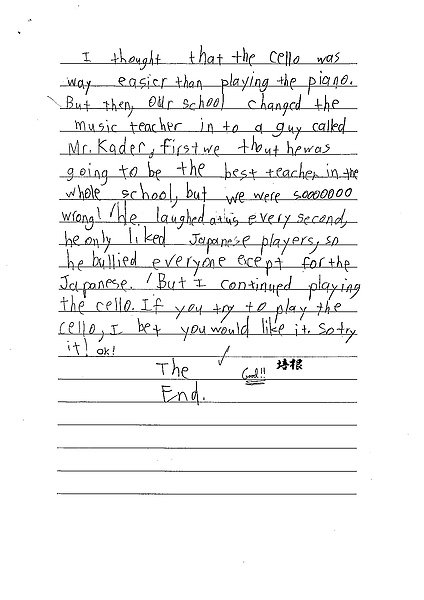 I thought that the cello was
way easier than playing the piano.
But then, our school changed the
music teacher in to a guy called
Mr. Kader, first we thout he was
going to be the best teacher in the
whole school, but we were soooooooo
wrong! He laughed at us every second,
he only liked Japanese players, so
he bullied everyone ecept for the
Japanese. But I continued playing
the cello. If you try to play the
cello, I bet you would like it. So try
it! ok!
The ✓ Good!! 培根
End.